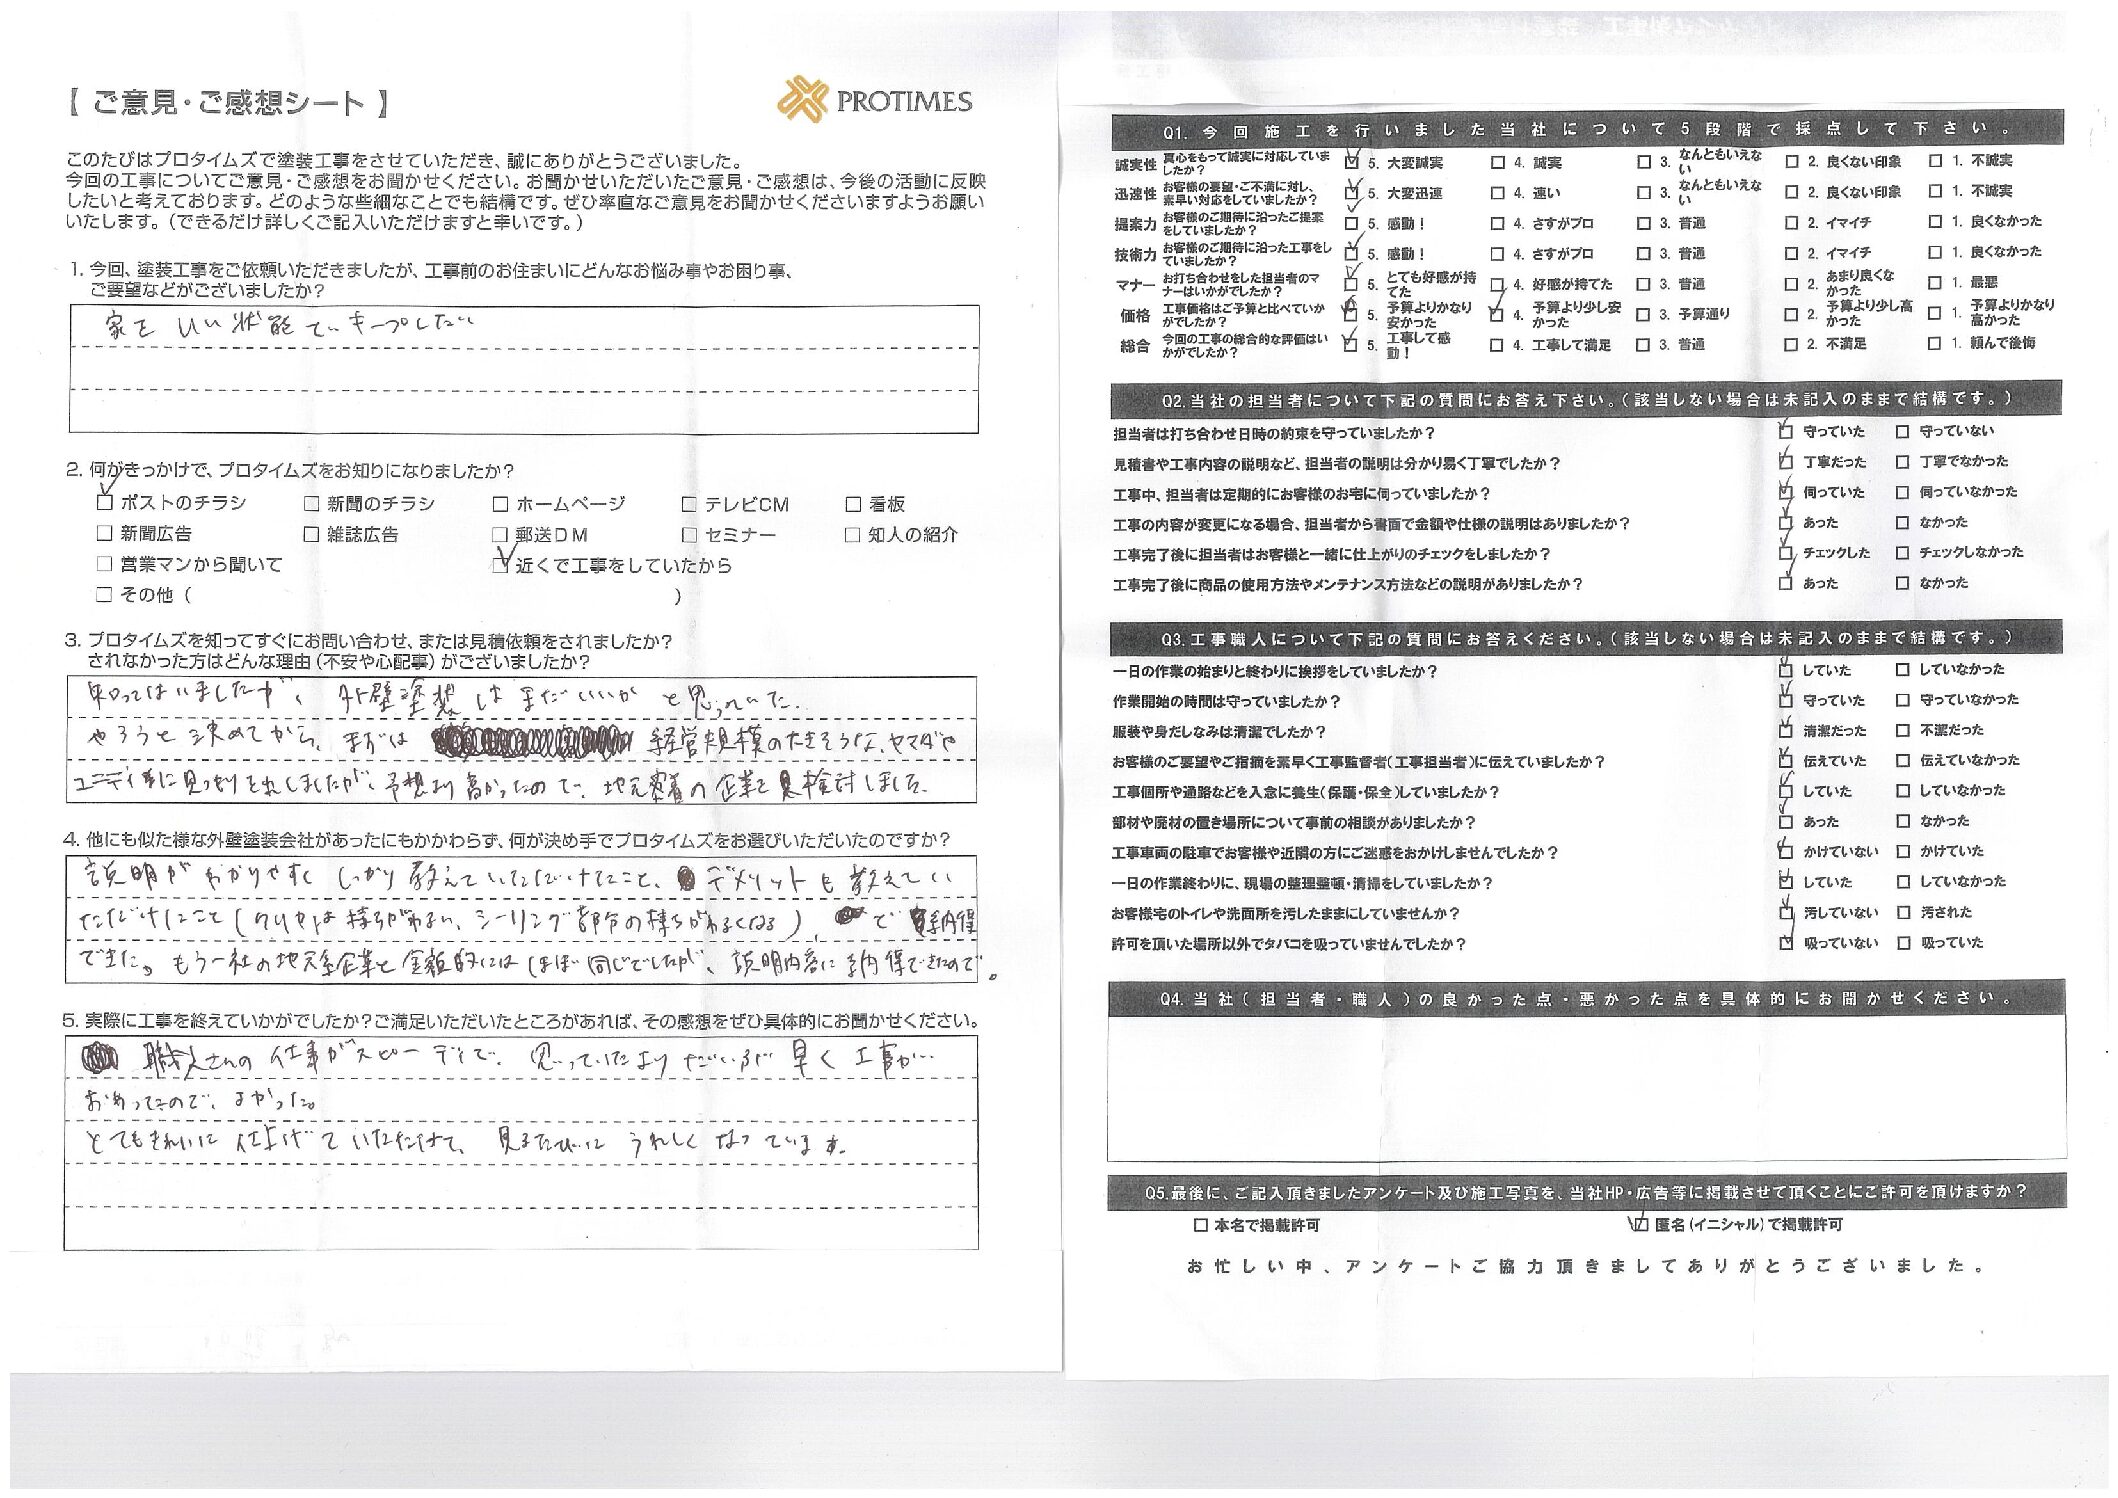 【 ご意見・ご感想シート 】
PROTIMES
このたびはプロタイムズで塗装工事をさせていただき、誠にありがとうございました。
今回の工事についてご意見・ご感想をお聞かせください。お聞かせいただいたご意見・ご感想は、今後の活動に反映
したいと考えております。どのような些細なことでも結構です。ぜひ率直なご意見をお聞かせくださいますようお願い
いたします。（できるだけ詳しくご記入いただけますと幸いです。）
1. 今回、塗装工事をご依頼いただきましたが、工事前のお住まいにどんなお悩み事やお困り事、
ご要望などがございましたか?
家を いい状態で キープしたい
2. 何がきっかけで、プロタイムズをお知りになりましたか?
☑ ポストのチラシ □ 新聞のチラシ □ ホームページ □ テレビCM □ 看板
□ 新聞広告 □ 雑誌広告 □ 郵送DM □ セミナー □ 知人の紹介
□ 営業マンから聞いて ☑ 近くで工事をしていたから
□ その他 (　　)
3. プロタイムズを知ってすぐにお問い合わせ、または見積依頼をされましたか?
されなかった方はどんな理由（不安や心配事）がございましたか?
知ってはいましたが、外壁塗想はまだいいかと思っていた。
やろうと決めてから、まずは 経営規模の大きそうな、ヤマダや
ユニディ等に見つもりをしましたが、予想より高かったので、地元密着の企業を検討しました。
4. 他にも似た様な外壁塗装会社があったにもかかわらず、何が決め手でプロタイムズをお選びいただいたのですか?
説明がわかりやすく しっかり教えていただけたこと、デメリットも教えてい
ただけたこと(クリヤは持ちがわるい、シーリング部分の持ちがわるくなる)、で 納得
できた。もう一社の地元系企業と金額的にはほぼ同じでしたが、説明内容に納得できたので。
5. 実際に工事を終えていかがでしたか?ご満足いただいたところがあれば、その感想をぜひ具体的にお聞かせください。
職人さんの仕事がスピーディで、思っていたよりだいぶ早く工事が
おわったので、よかった。
とてもきれいに仕上げていただけて、見るたびにうれしくなっています。
Q1. 今回施工を行いました当社について5段階で採点して下さい。
誠実性 真心をもって誠実に対応していましたか? ☑ 5. 大変誠実 □ 4. 誠実 □ 3. なんともいえない □ 2. 良くない印象 □ 1. 不誠実
迅速性 お客様の要望・ご不満に対し、素早い対応をしていましたか? ☑ 5. 大変迅速 □ 4. 速い □ 3. なんともいえない □ 2. 良くない印象 □ 1. 不誠実
提案力 お客様のご期待に沿ったご提案をしていましたか? ☑ 5. 感動! □ 4. さすがプロ □ 3. 普通 □ 2. イマイチ □ 1. 良くなかった
技術力 お客様のご期待に沿った工事をしていましたか? ☑ 5. 感動! □ 4. さすがプロ □ 3. 普通 □ 2. イマイチ □ 1. 良くなかった
マナー お打ち合わせをした担当者のマナーはいかがでしたか? ☑ 5. とても好感が持てた □ 4. 好感が持てた □ 3. 普通 □ 2. あまり良くなかった □ 1. 最悪
価格 工事価格はご予算と比べていかがでしたか? □ 5. 予算よりかなり安かった ☑ 4. 予算より少し安かった □ 3. 予算通り □ 2. 予算より少し高かった □ 1. 予算よりかなり高かった
総合 今回の工事の総合的な評価はいかがでしたか? ☑ 5. 工事して感動! □ 4. 工事して満足 □ 3. 普通 □ 2. 不満足 □ 1. 頼んで後悔
Q2.当社の担当者について下記の質問にお答え下さい。(該当しない場合は未記入のままで結構です。)
担当者は打ち合わせ日時の約束を守っていましたか? ☑ 守っていた □ 守っていない
見積書や工事内容の説明など、担当者の説明は分かり易く丁寧でしたか? ☑ 丁寧だった □ 丁寧でなかった
工事中、担当者は定期的にお客様のお宅に伺っていましたか? ☑ 伺っていた □ 伺っていなかった
工事の内容が変更になる場合、担当者から書面で金額や仕様の説明はありましたか? ☑ あった □ なかった
工事完了後に担当者はお客様と一緒に仕上がりのチェックをしましたか? ☑ チェックした □ チェックしなかった
工事完了後に商品の使用方法やメンテナンス方法などの説明がありましたか? ☑ あった □ なかった
Q3.工事職人について下記の質問にお答えください。(該当しない場合は未記入のままで結構です。)
一日の作業の始まりと終わりに挨拶をしていましたか? ☑ していた □ していなかった
作業開始の時間は守っていましたか? ☑ 守っていた □ 守っていなかった
服装や身だしなみは清潔でしたか? ☑ 清潔だった □ 不潔だった
お客様のご要望やご指摘を素早く工事監督者(工事担当者)に伝えていましたか? ☑ 伝えていた □ 伝えていなかった
工事個所や通路などを入念に養生(保護・保全)していましたか? ☑ していた □ していなかった
部材や廃材の置き場所について事前の相談がありましたか? ☑ あった □ なかった
工事車両の駐車でお客様や近隣の方にご迷惑をおかけしませんでしたか? ☑ かけていない □ かけていた
一日の作業終わりに、現場の整理整頓・清掃をしていましたか? ☑ していた □ していなかった
お客様宅のトイレや洗面所を汚したままにしていませんか? ☑ 汚していない □ 汚された
許可を頂いた場所以外でタバコを吸っていませんでしたか? ☑ 吸っていない □ 吸っていた
Q4. 当社(担当者・職人)の良かった点・悪かった点を具体的にお聞かせください。
Q5.最後に、ご記入頂きましたアンケート及び施工写真を、当社HP・広告等に掲載させて頂くことにご許可を頂けますか?
□ 本名で掲載許可 ☑ 匿名(イニシャル)で掲載許可
お忙しい中、アンケートご協力頂きましてありがとうございました。